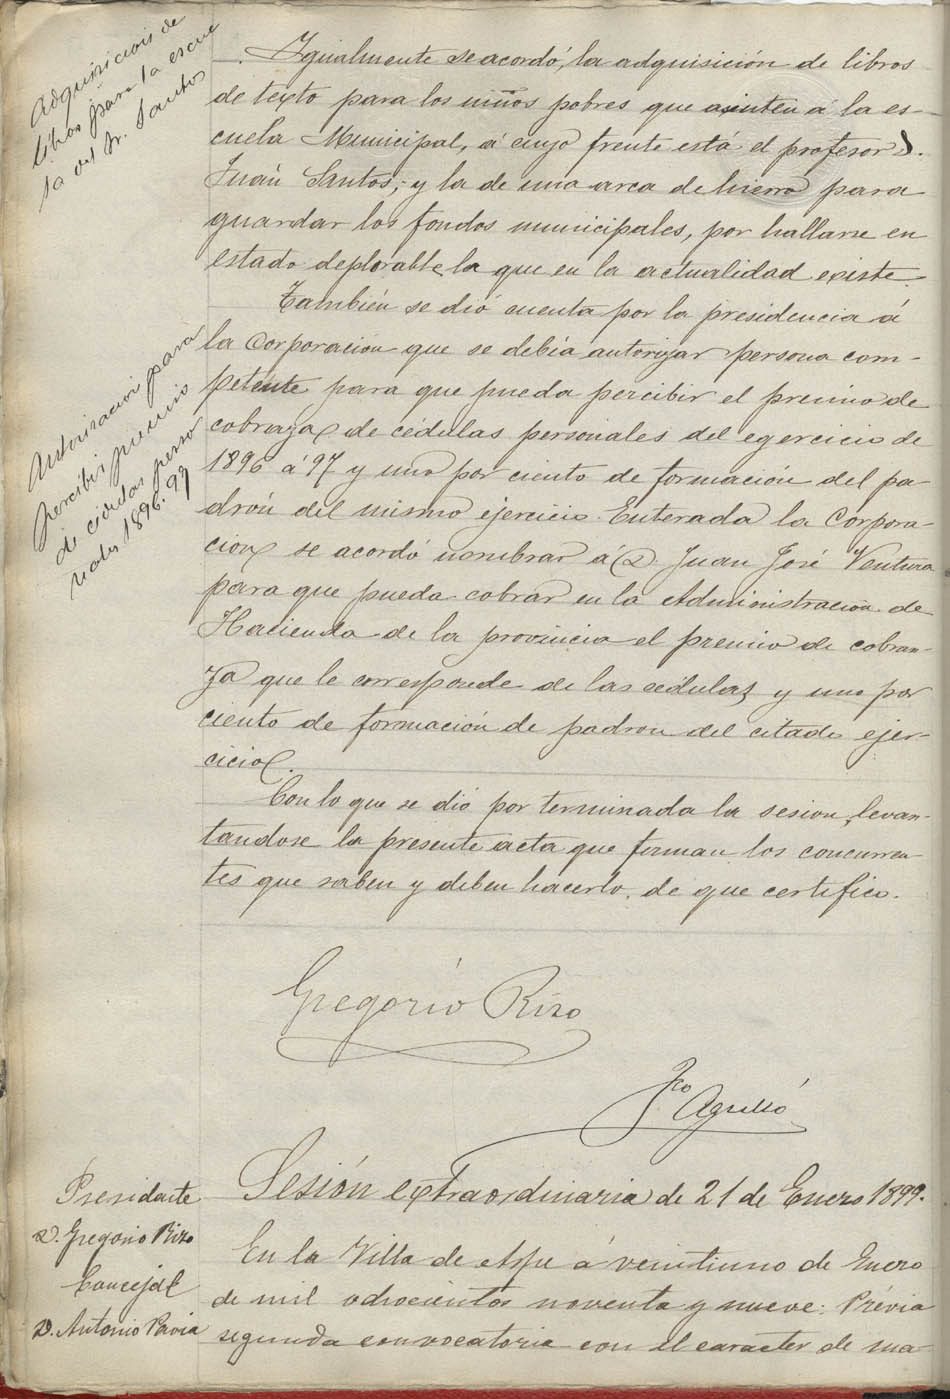 Adquisicion de
libros para la escue
la del Sr. Santos
Igualmente se acordó, la adquisición de libros
de texto para los niños pobres que asisten á la es-
cuela Municipal, á cuyo frente está el profesor D.
Juan Santos, y la de una arca de hierro para
guardar los fondos municipales, por hallarse en
estado deplorable, la que en la actualidad existe.
Autorizacion para
percibir premio
de cédulas perso
nales 1896-97
También se dió cuenta por la presidencia á
la Corporacion que se debía autorizar persona com-
petente para que pueda percibir el premio de
cobranza de cédulas personales del egercicio de
1896 á 97 y uno por ciento de formación del pa-
drón del mismo ejercicio. Enterada la Corpora-
cion se acordó nombrar á D. Juan José Ventura
para que pueda cobrar en la Administracion de
Hacienda de la provincia el premio de cobran-
za que le corresponde de las cédulas y uno por
ciento de formación de padron del citado ejer-
cicio.
Con lo que se dió por terminada la sesion, levan-
tandose la presente acta que firman los concurren-
tes que saben y deben hacerlo, de que certifico.
Gregorio Rizo
Fco Agulló
Sesión extraordinaria de 21 de Enero 1899.
Presidente
D. Gregorio Rizo
Concejal
D. Antonio Pavia
En la Villa de Aspe á veintiuno de Enero
de mil ochocientos noventa y nueve: Prévia
segunda convocatoria con el caracter de ma-